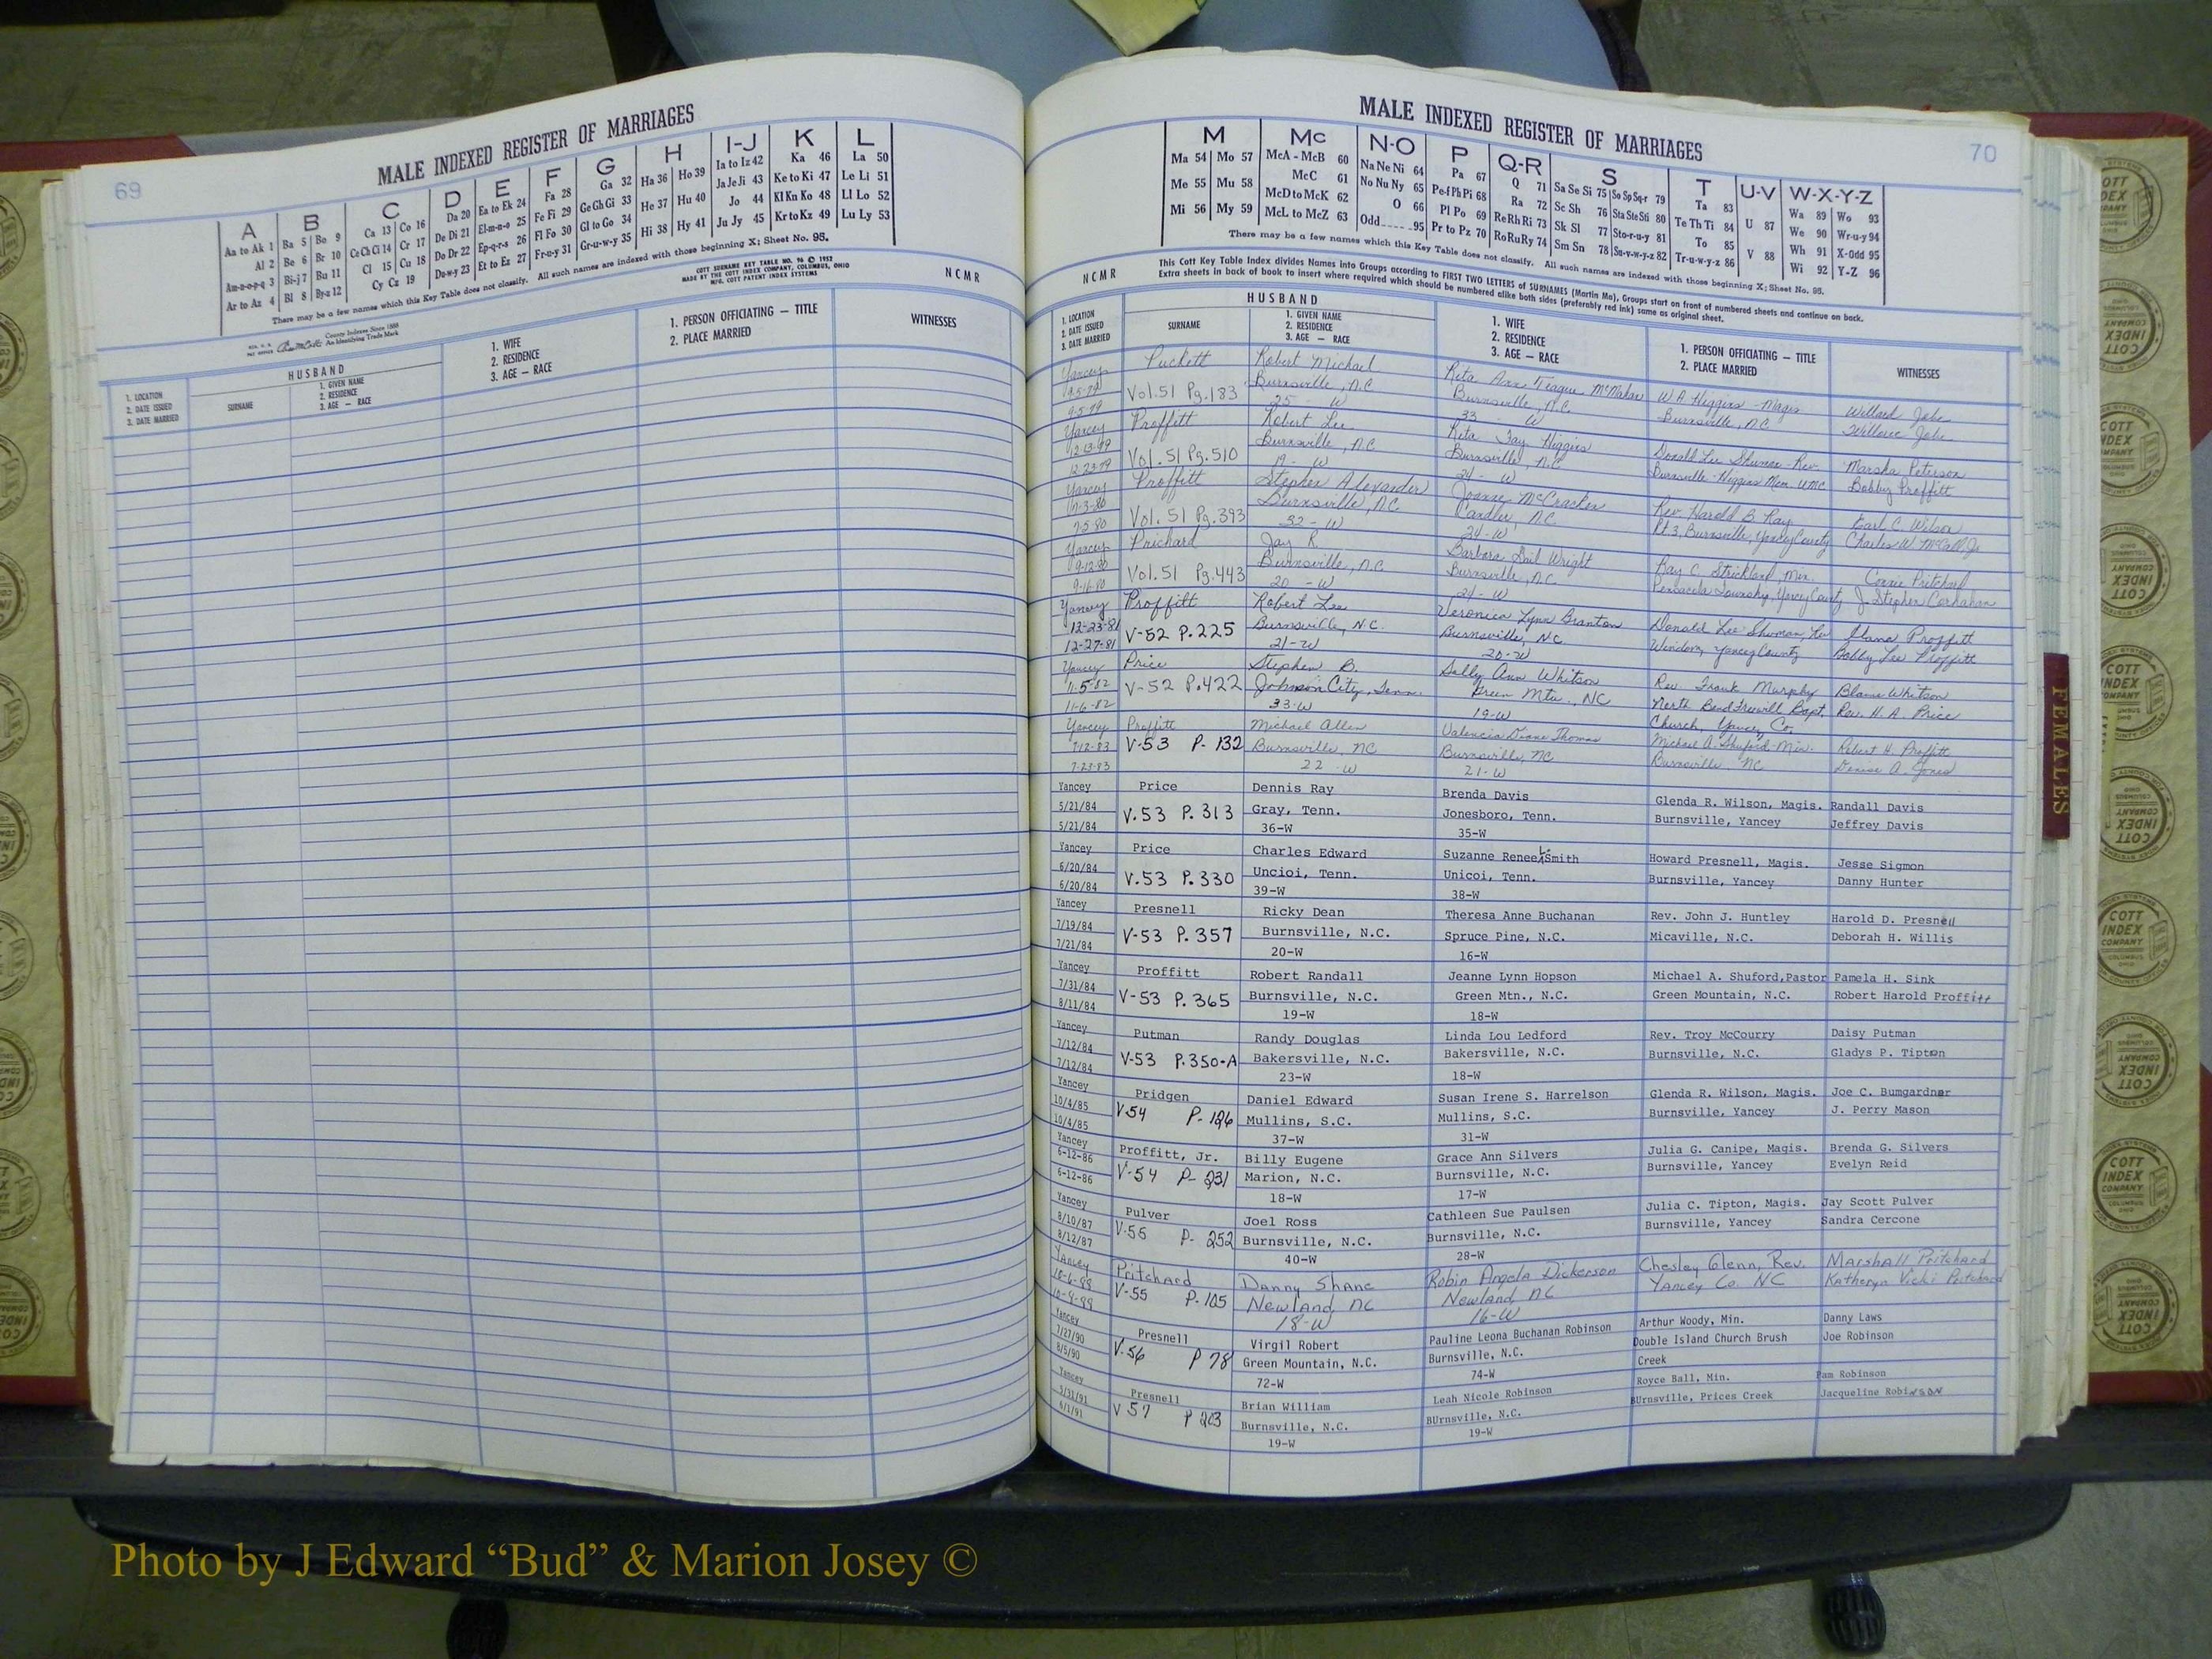 69
MALE INDEXED REGISTER OF MARRIAGES
A B C D E F G H I-J K L
Aa to Ak 1 Ba 5 Bo 9 Ca 13 Co 16 Da 20 Ea to Ek 24 Fa 28 Ga 32 Ha 36 Ho 39 Ia to Iz 42 Ka 46 La 50
Al 2 Be 6 Br 10 Ce Ch Ci 14 Cr 17 De Di 21 El-m-n-o 25 Fe Fi 29 Ge Gh Gi 33 He 37 Hu 40 Ja Je Ji 43 Ke to Ki 47 Le Li 51
Am-n-o-p-q 3 Bi-j 7 Bu 11 Cl 15 Cu 18 Do Dr 22 Ep-q-r-s 26 Fl Fo 30 Gl to Go 34 Hi 38 Hy 41 Jo 44 Kl Kn Ko 48 Ll Lo 52
Ar to Az 4 Bl 8 By-z 12 Cy Cz 19 Du-w-y 23 Et to Ez 27 Fr-u-y 31 Gr-u-w-y 35 Ju Jy 45 Kr to Kz 49 Lu Ly 53
There may be a few names which this Key Table does not classify. All such names are indexed with those beginning X; Sheet No. 95.
COTT SURNAME KEY TABLE NO. 96 © 1952
MADE BY THE COTT INDEX COMPANY, COLUMBUS, OHIO
MFG. COTT PATENT INDEX SYSTEMS
NCMR
County Indexes Since 1888
An Identifying Trade Mark
1. LOCATION
2. DATE ISSUED
3. DATE MARRIED
HUSBAND
SURNAME
1. GIVEN NAME
2. RESIDENCE
3. AGE — RACE
1. WIFE
2. RESIDENCE
3. AGE — RACE
1. PERSON OFFICIATING — TITLE
2. PLACE MARRIED
WITNESSES
MALE INDEXED REGISTER OF MARRIAGES
70
M Mc N-O P Q-R S T U-V W-X-Y-Z
Ma 54 Mo 57 McA - McB 60 Na Ne Ni 64 Pa 67 Q 71 Sa Se Si 75 So Sp Sq-r 79 Ta 83 U 87 Wa 89 Wo 93
Me 55 Mu 58 McC 61 No Nu Ny 65 Pe-f Ph Pi 68 Ra 72 Sc Sh 76 Sta Ste Sti 80 Te Th Ti 84 V 88 We 90 Wr-u-y 94
Mi 56 My 59 McD to McK 62 O 66 Pl Po 69 Re Rh Ri 73 Sk Sl 77 Sto-r-u-y 81 To 85 Wh 91 X-Odd 95
McL to McZ 63 Odd 95 Pr to Pz 70 Ro Ru Ry 74 Sm Sn 78 Su-v-w-y-z 82 Tr-u-w-y-z 86 Wi 92 Y-Z 96
There may be a few names which this Key Table does not classify. All such names are indexed with those beginning X; Sheet No. 95.
NCMR
This Cott Key Table Index divides Names into Groups according to FIRST TWO LETTERS of SURNAMES (Martin Ma), Groups start on front of numbered sheets and continue on back.
Extra sheets in back of book to insert where required which should be numbered alike both sides (preferably red ink) same as original sheet.
1. LOCATION
2. DATE ISSUED
3. DATE MARRIED
HUSBAND
SURNAME
1. GIVEN NAME
2. RESIDENCE
3. AGE — RACE
1. WIFE
2. RESIDENCE
3. AGE — RACE
1. PERSON OFFICIATING — TITLE
2. PLACE MARRIED
WITNESSES
Yancey Puckett Robert Michael Rita Ann Teague McMahan W.A. Higgins - Magis
9-5-79 Vol.51 Pg.183 Burnsville, N.C. Burnsville, N.C. Burnsville, NC Willard
9-5-79 25 - W 33 - W
Yancey Proffitt Robert Lee Rita Fay Higgins Donald Lee Shuman - Rev. Marsha Peterson
12-13-79 Vol. 51 Pg. 510 Burnsville, N.C. Burnsville, N.C. Burnsville - Higgins Mem. UMC Bobby Proffitt
12-23-79 19 - W 24 - W
Yancey Proffitt Stephen Alexander Joanne McCracken Rev. Harold B. Ray Earl C. Wilson
7-3-80 Vol. 51 Pg. 393 Burnsville, N.C. Candler, N.C. Rt. 3, Burnsville, Yancey County Charles W. McCall Jr
7-5-80 32 - W 24-W
Yancey Prichard Jay R. Barbara Gail Wright Ray C. Strickland, Min. Connie Pritchard
9-12-80 Vol. 51 Pg. 443 Burnsville, N.C. Burnsville, N.C. Pensacola Township, Yancey County J. Stephen
9-16-80 20 - W 21 - W
Yancey Proffitt Robert Lee Veronica Lynn Branton Donald Lee Shuman, Rev Proffitt
12-23-81 V-52 P.225 Burnsville, N.C. Burnsville, NC Windom, Yancey County Bobby Lee Proffitt
12-27-81 21-W 20-W
Yancey Price Stephen B. Sally Ann Whitson Rev. Frank Murphy Blane Whitson
11-5-82 V-52 P.422 Johnson City, Tenn. Green Mtn., NC North Bend Freewill Bapt. Rev. H. A. Price
11-6-82 33-W 19-W Church, Yancey Co,
Yancey Proffitt Michael Allen Valencia Diane Thomas Michael A. Shuford - Min. Robert H. Proffitt
7-12-83 V-53 P- 132 Burnsville, NC Burnsville, NC Burnsville, NC Denise A. Jones
7-23-83 22 -W 21-W
Yancey Price Dennis Ray Brenda Davis Glenda R. Wilson, Magis. Randall Davis
5/21/84 V.53 P.313 Gray, Tenn. Jonesboro, Tenn. Burnsville, Yancey Jeffrey Davis
5/21/84 36-W 35-W
Yancey Price Charles Edward Suzanne Renee L. Smith Howard Presnell, Magis. Jesse Sigmon
6/20/84 V.53 P.330 Uncioi, Tenn. Unicoi, Tenn. Burnsville, Yancey Danny Hunter
6/20/84 39-W 38-W
Yancey Presnell Ricky Dean Theresa Anne Buchanan Rev. John J. Huntley Harold D. Presnell
7/19/84 V-53 P.357 Burnsville, N.C. Spruce Pine, N.C. Micaville, N.C. Deborah H. Willis
7/21/84 20-W 16-W
Yancey Proffitt Robert Randall Jeanne Lynn Hopson Michael A. Shuford,Pastor Pamela H. Sink
7/31/84 V-53 P.365 Burnsville, N.C. Green Mtn., N.C. Green Mountain, N.C. Robert Harold Proffitt
8/11/84 19-W 18-W
Yancey Putman Randy Douglas Linda Lou Ledford Rev. Troy McCourry Daisy Putman
7/12/84 V-53 P.350-A Bakersville, N.C. Bakersville, N.C. Burnsville, N.C. Gladys P. Tipton
7/12/84 23-W 18-W
Yancey Pridgen Daniel Edward Susan Irene S. Harrelson Glenda R. Wilson, Magis. Joe C. Bumgardner
10/4/85 V-54 P-126 Mullins, S.C. Mullins, S.C. Burnsville, Yancey J. Perry Mason
10/4/85 37-W 31-W
Yancey Proffitt, Jr. Billy Eugene Grace Ann Silvers Julia G. Canipe, Magis. Brenda G. Silvers
6-12-86 V-54 P-231 Marion, N.C. Burnsville, N.C. Burnsville, Yancey Evelyn Reid
6-12-86 18-W 17-W
Yancey Pulver Joel Ross Cathleen Sue Paulsen Julia C. Tipton, Magis. Jay Scott Pulver
8/10/87 V-55 P-252 Burnsville, N.C. Burnsville, N.C. Burnsville, Yancey Sandra Cercone
8/12/87 40-W 28-W
Yancey Pritchard Danny Shane Robin Angela Dickerson Chesley Glenn, Rev. Marshall Pritchard
V-55 P-105 Newland, NC Newland NC Yancey Co. NC Katheryn Vicki Pritchard
18-W 16-W
Yancey Presnell Virgil Robert Pauline Leona Buchanan Robinson Arthur Woody, Min. Danny Laws
7/27/90 V-56 P 78 Green Mountain, N.C. Burnsville, N.C. Double Island Church Brush Joe Robinson
8/5/90 72-W 74-W Creek
Yancey Presnell Brian William Leah Nicole Robinson Royce Ball, Min. Pam Robinson
5/31/91 V 57 P 203 Burnsville, N.C. BUrnsville, N.C. BUrnsville, Prices Creek Jacqueline Robinson
6/1/91 19-W 19-W
FEMALES
COTT INDEX COMPANY
Photo by J Edward “Bud” & Marion Josey ©